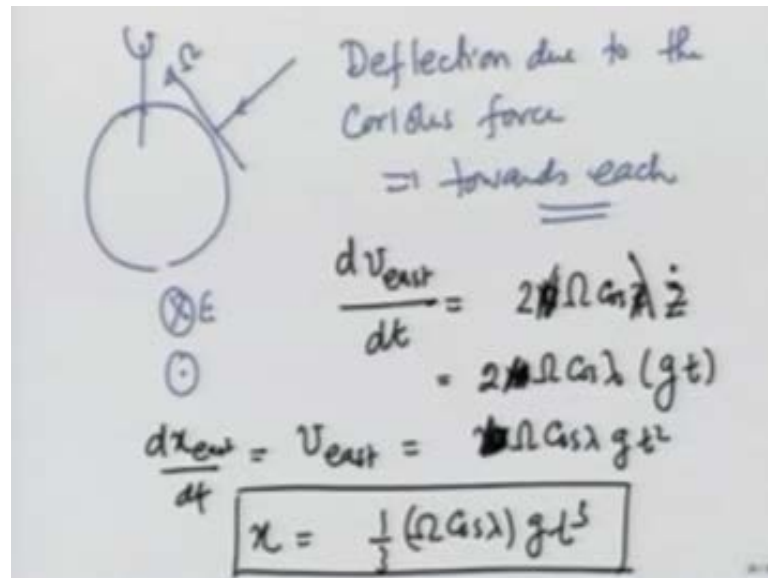 Ω
Deflection due to the
Coriolus force
⇒ towards each
⊗E
⊙
dv_east/dt = 2Ω Cos λ ż
= 2Ω Cos λ (gt)
dx_east/dt = v_east = Ω Cos λ g t²
x = 1/3 (Ω Cos λ) g t³